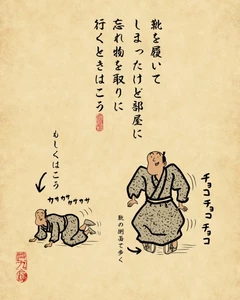 靴を履いて
しまったけど部屋に
忘れ物を取りに
行くときはこう
もしくはこう
カサカサカサカサ
チョコチョコチョコ
靴の側面で歩く